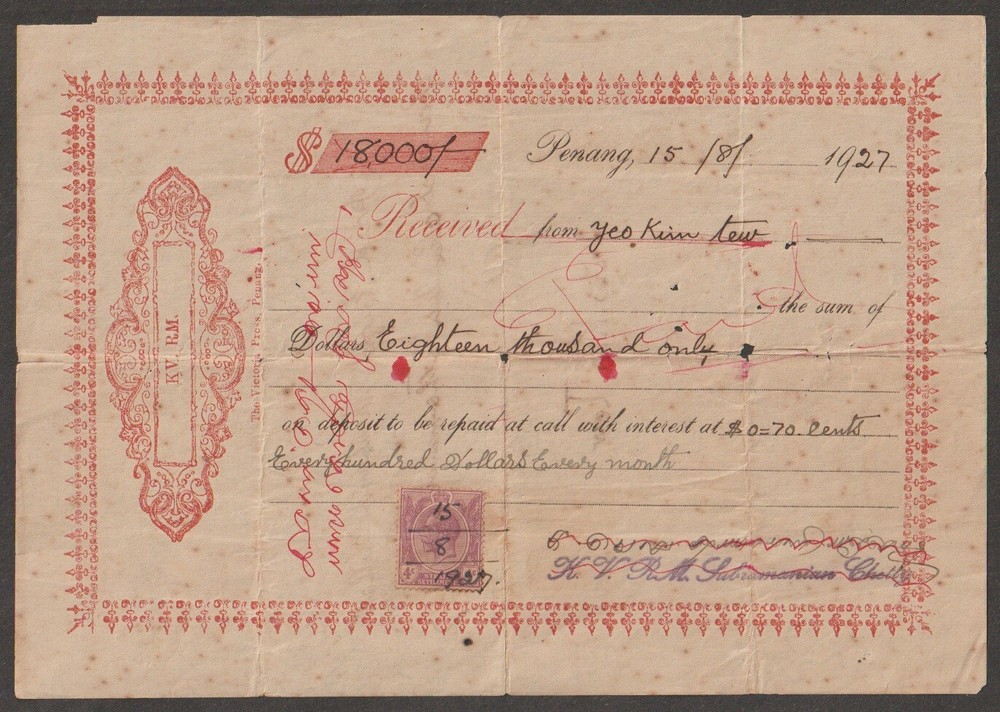 $ 18,000/-
Penang, 15/8/ 1927
Received from Yeo Kim Tew
the sum of
Dollars, Eighteen thousand only
on deposit to be repaid at call with interest at $0=70 cents
Every hundred Dollars Every month
KV. RM.
The Victoria Press, Penang.
15
8
1927.
4c
K. V. R.M. Subramanian Chetty